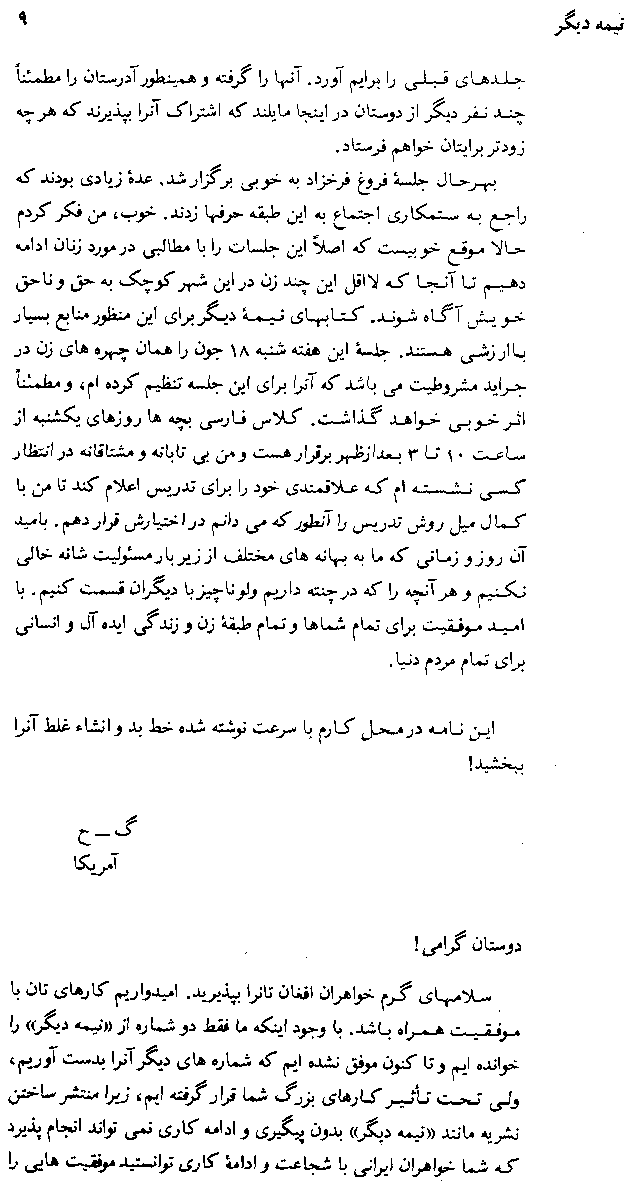 نیمه دیگر ۹
جلدهای قبلی را برایم آورد. آنها را گرفته و همینطور آدرستان را مطمئناً
چند نفر دیگر از دوستان در اینجا مایلند که اشتراک آنرا بپذیرند که هر چه
زودتر برایتان خواهم فرستاد.
بهرحال جلسهٔ فروغ فرخزاد به خوبی برگزار شد. عدهٔ زیادی بودند که
راجع به ستمکاری اجتماع به این طبقه حرفها زدند. خوب، من فکر کردم
حالا موقع خوبیست که اصلاً این جلسات را با مطالبی در مورد زنان ادامه
دهیم تا آنجا که لااقل این چند زن در این شهر کوچک به حق و ناحق
خویش آگاه شوند. کتابهای نیمهٔ دیگر برای این منظور منابع بسیار
باارزشی هستند. جلسهٔ این هفته شنبه ۱۸ جون را همان چهره های زن در
جراید مشروطیت می باشد که آنرا برای این جلسه تنظیم کرده ام، و مطمئناً
اثر خوبی خواهد گذاشت. کلاس فارسی بچه ها روزهای یکشنبه از
ساعت ۱۰ تا ۳ بعدازظهر برقرار هست و من بی تابانه و مشتاقانه در انتظار
کسی نشسته ام که علاقمندی خود را برای تدریس اعلام کند تا من با
کمال میل روش تدریس را آنطور که می دانم در اختیارش قرار دهم. بامید
آن روز و زمانی که ما به بهانه های مختلف از زیر بار مسئولیت شانه خالی
نکنیم و هر آنچه را که در چنته داریم ولو ناچیز با دیگران قسمت کنیم. با
امید موفقیت برای تمام شماها و تمام طبقهٔ زن و زندگی ایده آل و انسانی
برای تمام مردم دنیا.
این نامه در محل کارم با سرعت نوشته شده خط بد و انشاء غلط آنرا
ببخشید!
گ ـ ح
آمریکا
دوستان گرامی!
سلامهای گرم خواهران افغان تانرا بپذیرید. امیدواریم کارهای تان با
موفقیت همراه باشد. با وجود اینکه ما فقط دو شماره از «نیمه دیگر» را
خوانده ایم و تا کنون موفق نشده ایم که شماره های دیگر آنرا بدست آوریم،
ولی تحت تأثیر کارهای بزرگ شما قرار گرفته ایم، زیرا منتشر ساختن
نشریه مانند «نیمه دیگر» بدون پیگیری و ادامه کاری نمی تواند انجام پذیرد
که شما خواهران ایرانی با شجاعت و ادامهٔ کاری توانستید موفقیت هایی را